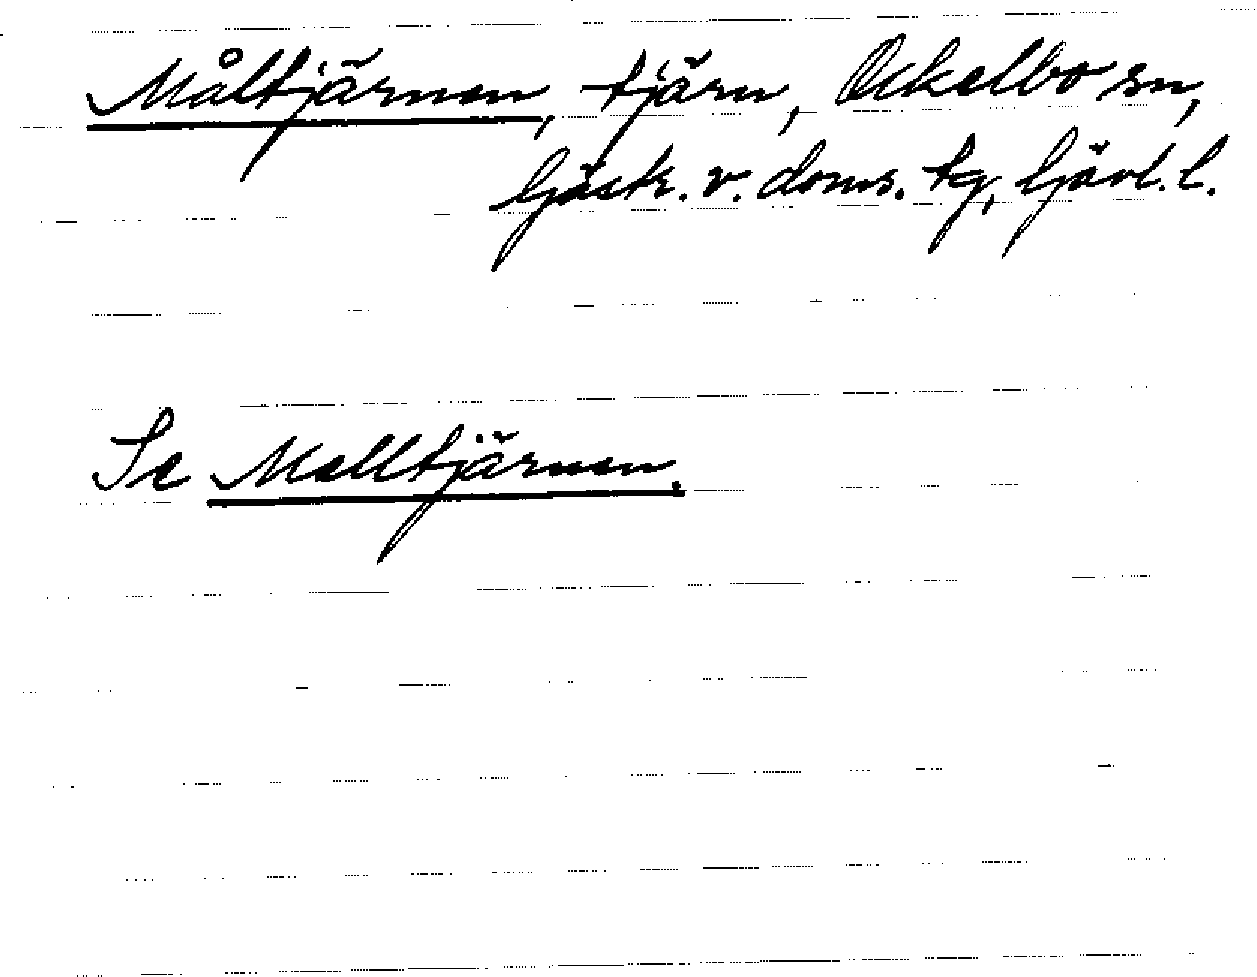 Måltjärnen, tjärn, Ockelbo sn,
Gästr. v. doms. tg, Gävl. l.
Se Malltjärnen.